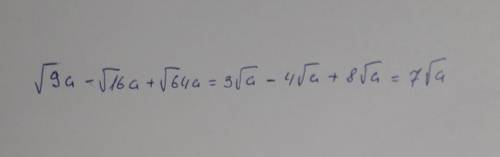 √9a - √16a + √64a = 3√a - 4√a + 8√a = 7√a